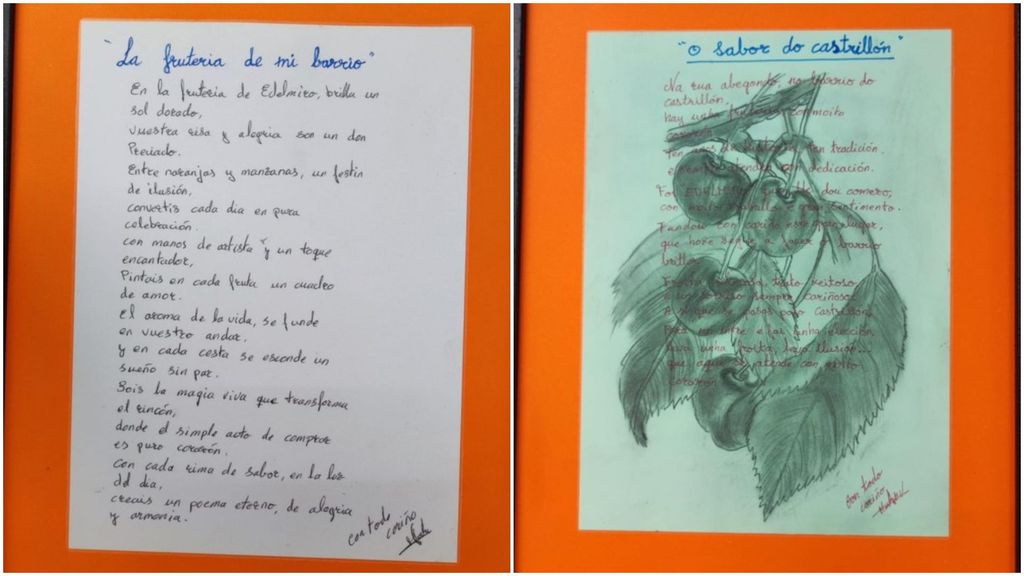 "La fruteria de mi barrio"
En la fruteria de Edelmiro, brilla un
sol dorado,
vuestra risa y alegria son un don
Preciado.
Entre naranjas y manzanas, un festin
de ilusión,
convertis cada dia en pura
celebración.
con manos de artista y un toque
encantador,
Pintais en cada fruta un cuadro
de amor.
El aroma de la vida, se funde
en vuestro andar,
y en cada cesta se esconde un
sueño sin par.
Sois la magia viva que transforma
el rincón,
donde el simple acto de comprar
es puro corazón.
Con cada rima de sabor, en la luz
del dia,
creais un poema eterno, de alegria
y armonia.
con todo
cariño
"O sabor do castrillón"
Na rua abegondo, no barrio do
castrillón,
hay unha fruteria con moito
corazón
Ten anos de historia, ten tradición.
e atende con dedicación.
Foi EDELMIRO quen lle dou comezo,
con moito traballo e gran sentimento.
Fundou con cariño este gran lugar,
que hoxe segue a facer o barrio
brillar
Froita trato xeitoso
e un sempre cariñoso
A si que se pasas polo Castrillón,
unha elección,
leva unha froita, leva ilusión...
que aquí se atende con moito
corazón
con todo
cariño